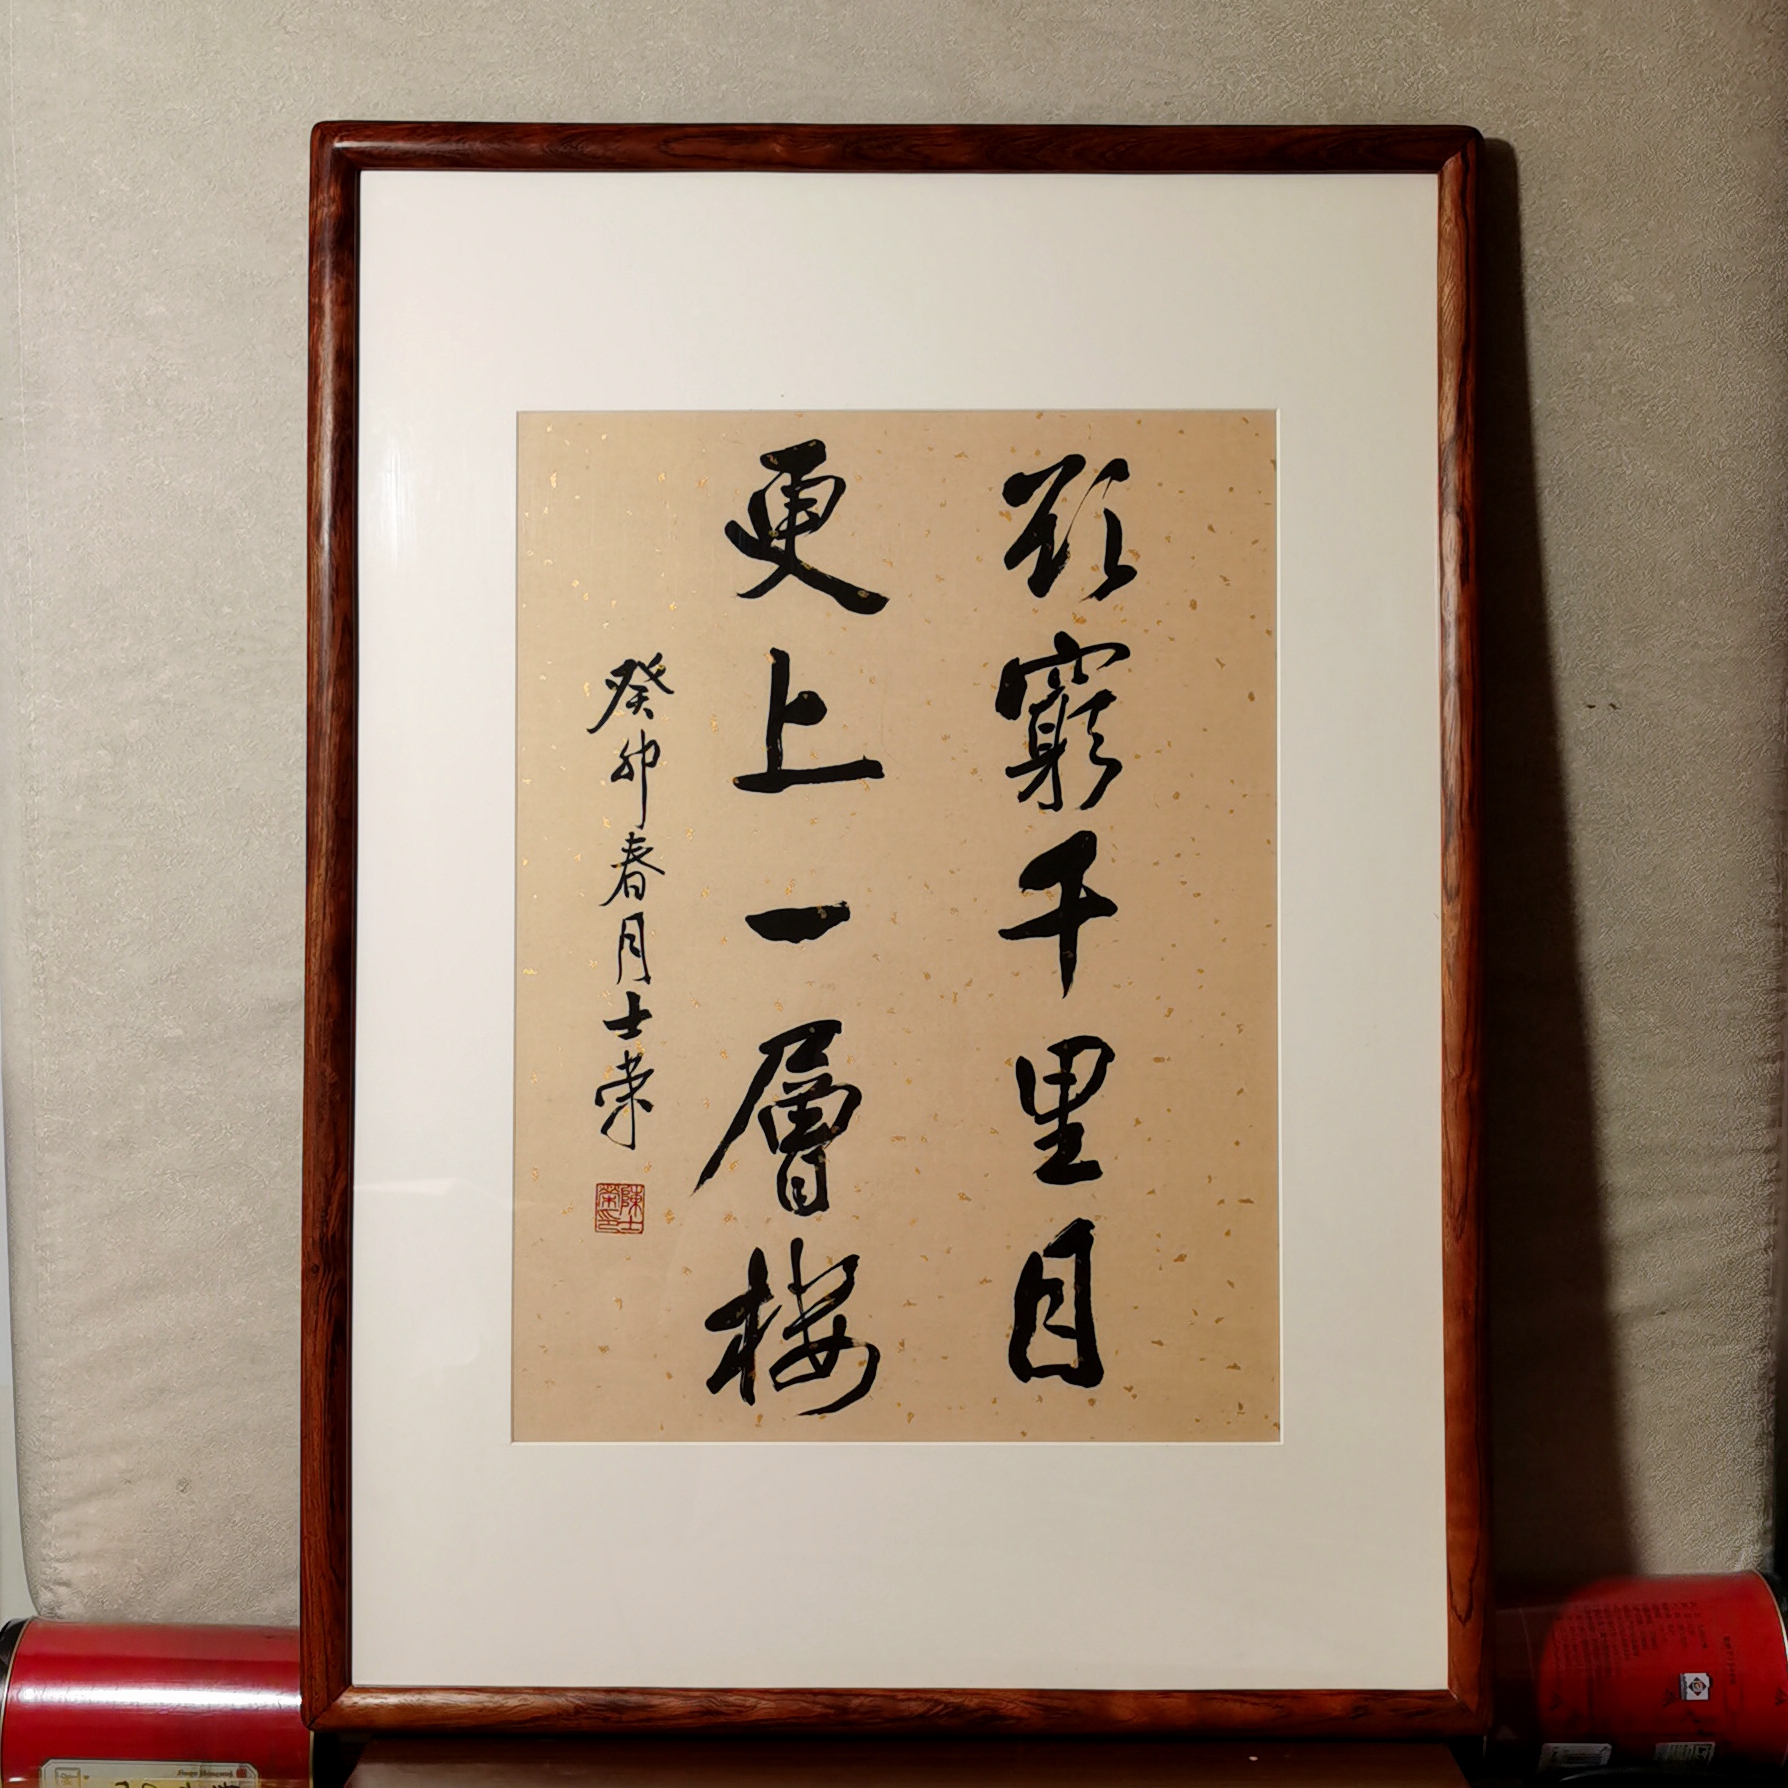 欲窮千里目
更上一層楼
癸卯春月士荣
陳士榮印